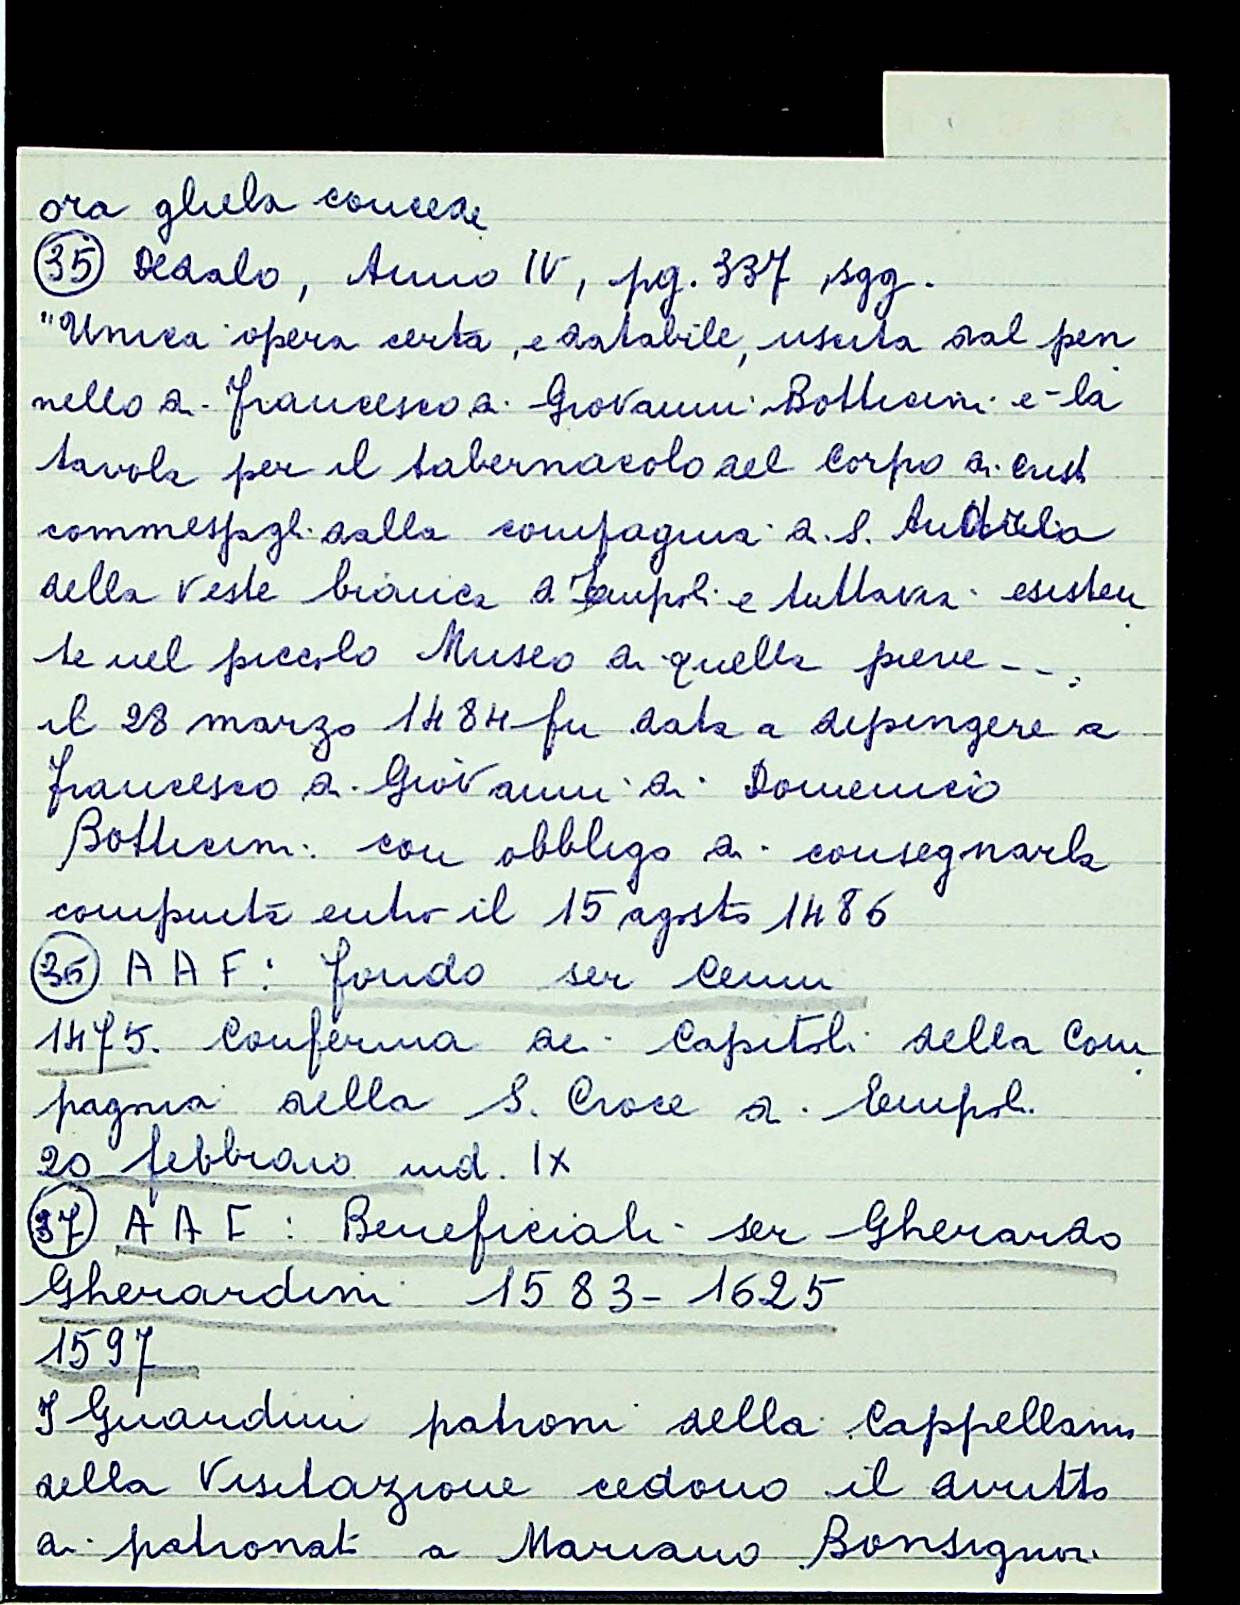 ora gliela concede
(35) Dedalo, Anno IV, pg. 337 sgg.
"Unica opera certa, e databile, uscita dal pen
nello di Francesco di Giovanni Botticini e-la
tavola per il tabernacolo del Corpo di Cristo
commessogli dalla compagnia di S. Andrea
della veste bianca di Empoli e tuttavia esisten
te nel piccolo Museo di quella pieve - - .
il 28 marzo 1484 fu data a dipingere a
Francesco di Giovanni di Domenico
Botticini con obbligo di consegnarla
compiuta entro il 15 agosto 1486
(36) A A F: fondo ser Cenni
1475. Conferma dei Capitoli della Com
pagnia della S. Croce di Empoli.
20 febbraio ind. IX
(37) A A F: Beneficiali ser Gherardo
Gherardini 1583-1625
1597
I Guardini patroni della Cappellania
della Visitazione cedono il diritto
di patronato a Mariano Bonsignori